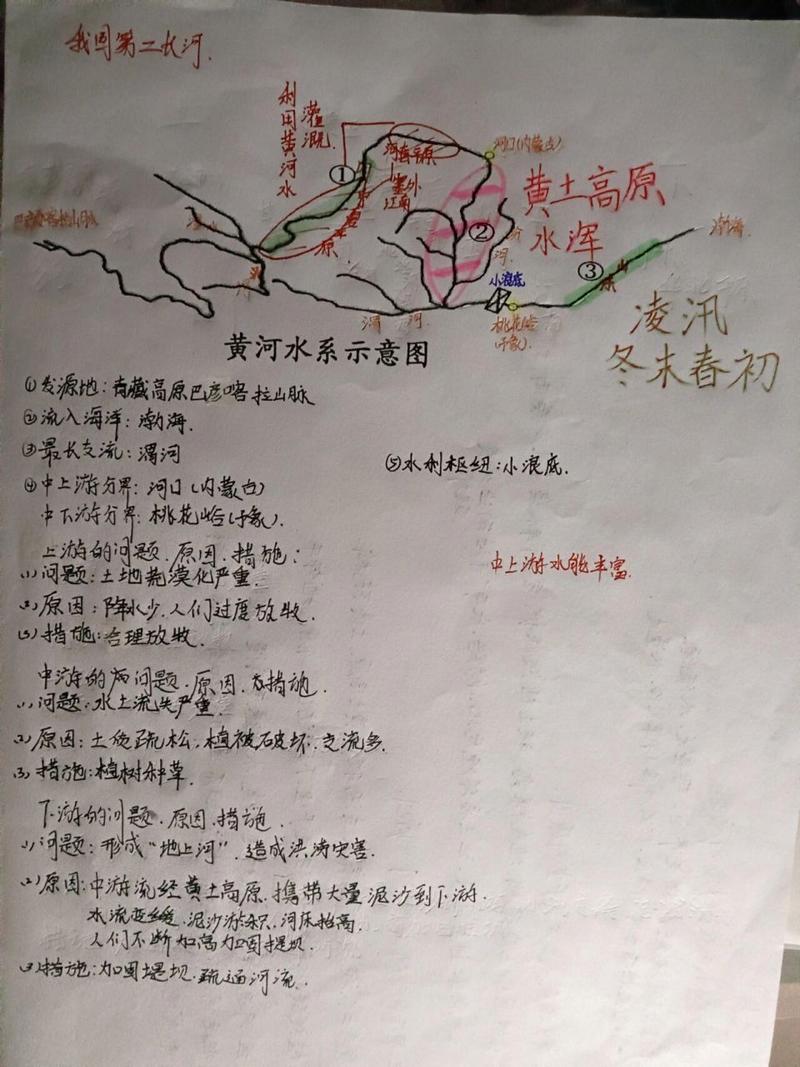 我国第二长河.
利用黄河水
灌溉.
河套平原
塞外
江南
①
宁夏平原
河口(内蒙古)
黄土高原
水浑
②
汾河
巴彦喀拉山脉
渤海
③
小浪底
桃花峪
(河南)
渭河
凌汛
冬末春初
黄河水系示意图
①发源地:青藏高原巴彦喀拉山脉
②流入海洋:渤海.
③最长支流:渭河
④中上游分界:河口(内蒙古)
中下游分界:桃花峪(河南).
⑤水利枢纽:小浪底.
上游的问题.原因.措施:
(1)问题:土地荒漠化严重.
(2)原因:降水少.人们过度放牧.
(3)措施:合理放牧.
中上游水能丰富.
中游的问题.原因.措施.
(1)问题:水土流失严重.
(2)原因:土质疏松.植被破坏.支流多.
(3)措施:植树种草.
下游的问题.原因.措施.
(1)问题:形成“地上河”.造成洪涝灾害.
(2)原因:中游流经黄土高原.携带大量泥沙到下游.
水流变缓.泥沙淤积.河床抬高.
人们不断加高加固堤坝.
(3)措施:加固堤坝.疏通河流.